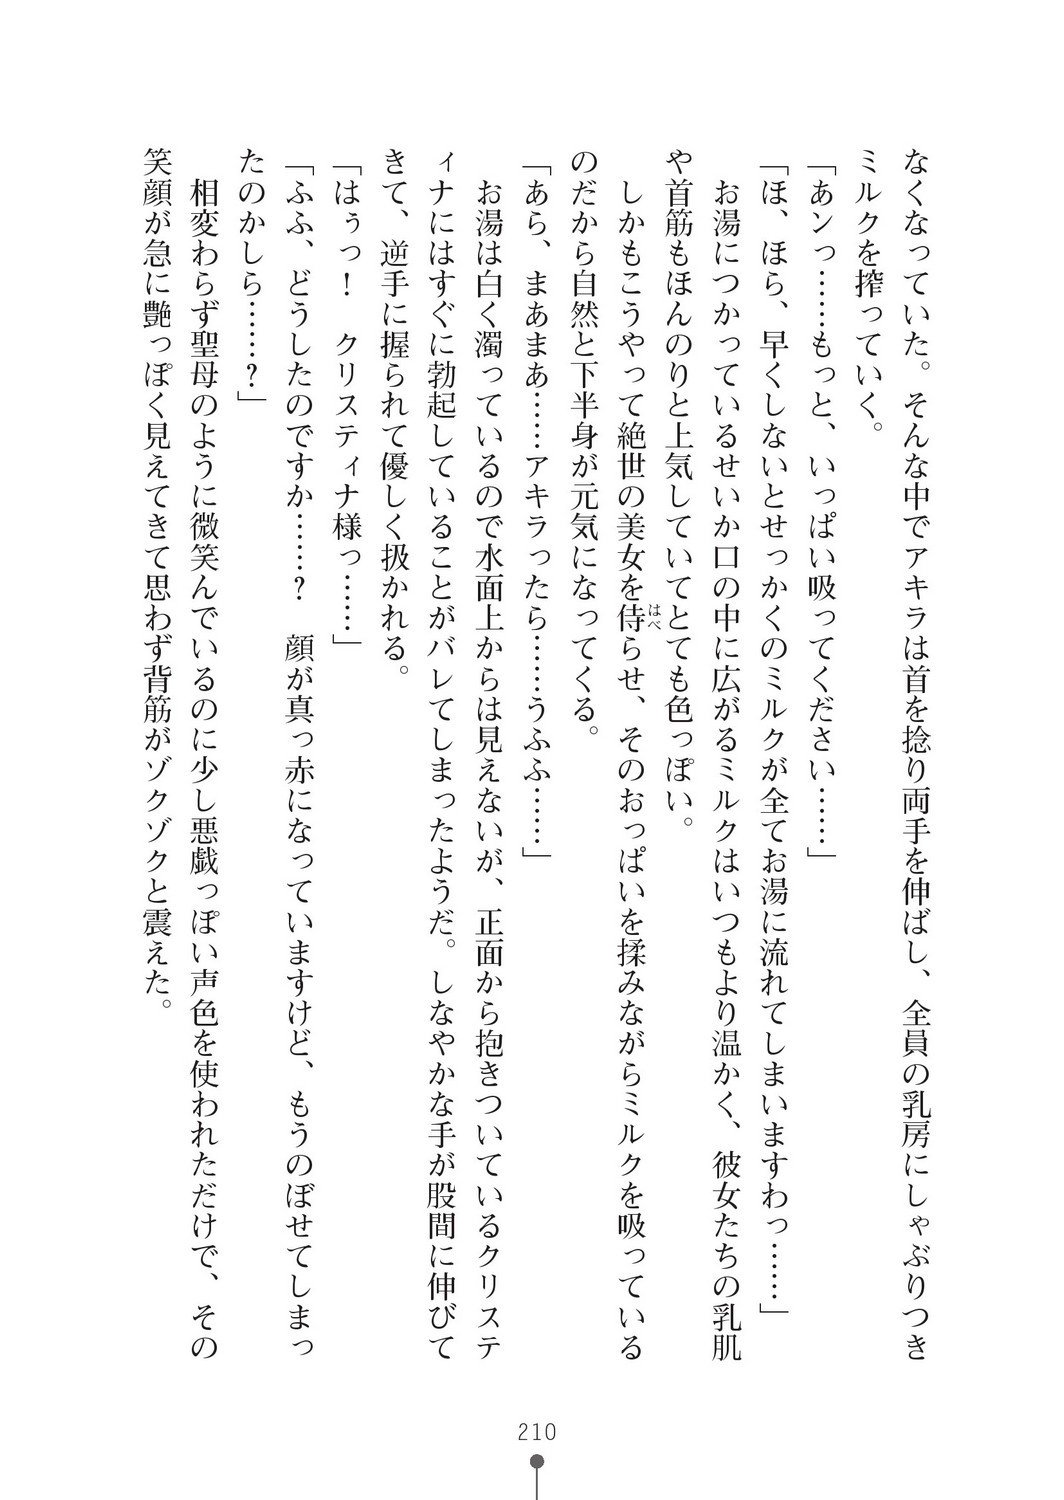 なくなっていた。そんな中でアキラは首を捻り両手を伸ばし、全員の乳房にしゃぶりつき
ミルクを搾っていく。
「あンっ……もっと、いっぱい吸ってください……」
「ほ、ほら、早くしないとせっかくのミルクが全てお湯に流れてしまいますわっ……」
　お湯につかっているせいか口の中に広がるミルクはいつもより温かく、彼女たちの乳肌
や首筋もほんのりと上気していてとても色っぽい。
　しかもこうやって絶世の美女を侍らせ、そのおっぱいを揉みながらミルクを吸っている
はべ
のだから自然と下半身が元気になってくる。
「あら、まあまあ……アキラったら……うふふ……」
　お湯は白く濁っているので水面上からは見えないが、正面から抱きついているクリステ
ィナにはすぐに勃起していることがバレてしまったようだ。しなやかな手が股間に伸びて
きて、逆手に握られて優しく扱かれる。
「はぅっ！　クリスティナ様っ……」
「ふふ、どうしたのですか……？　顔が真っ赤になっていますけど、もうのぼせてしまっ
たのかしら……？」
　相変わらず聖母のように微笑んでいるのに少し悪戯っぽい声色を使われただけで、その
笑顔が急に艶っぽく見えてきて思わず背筋がゾクゾクと震えた。
210